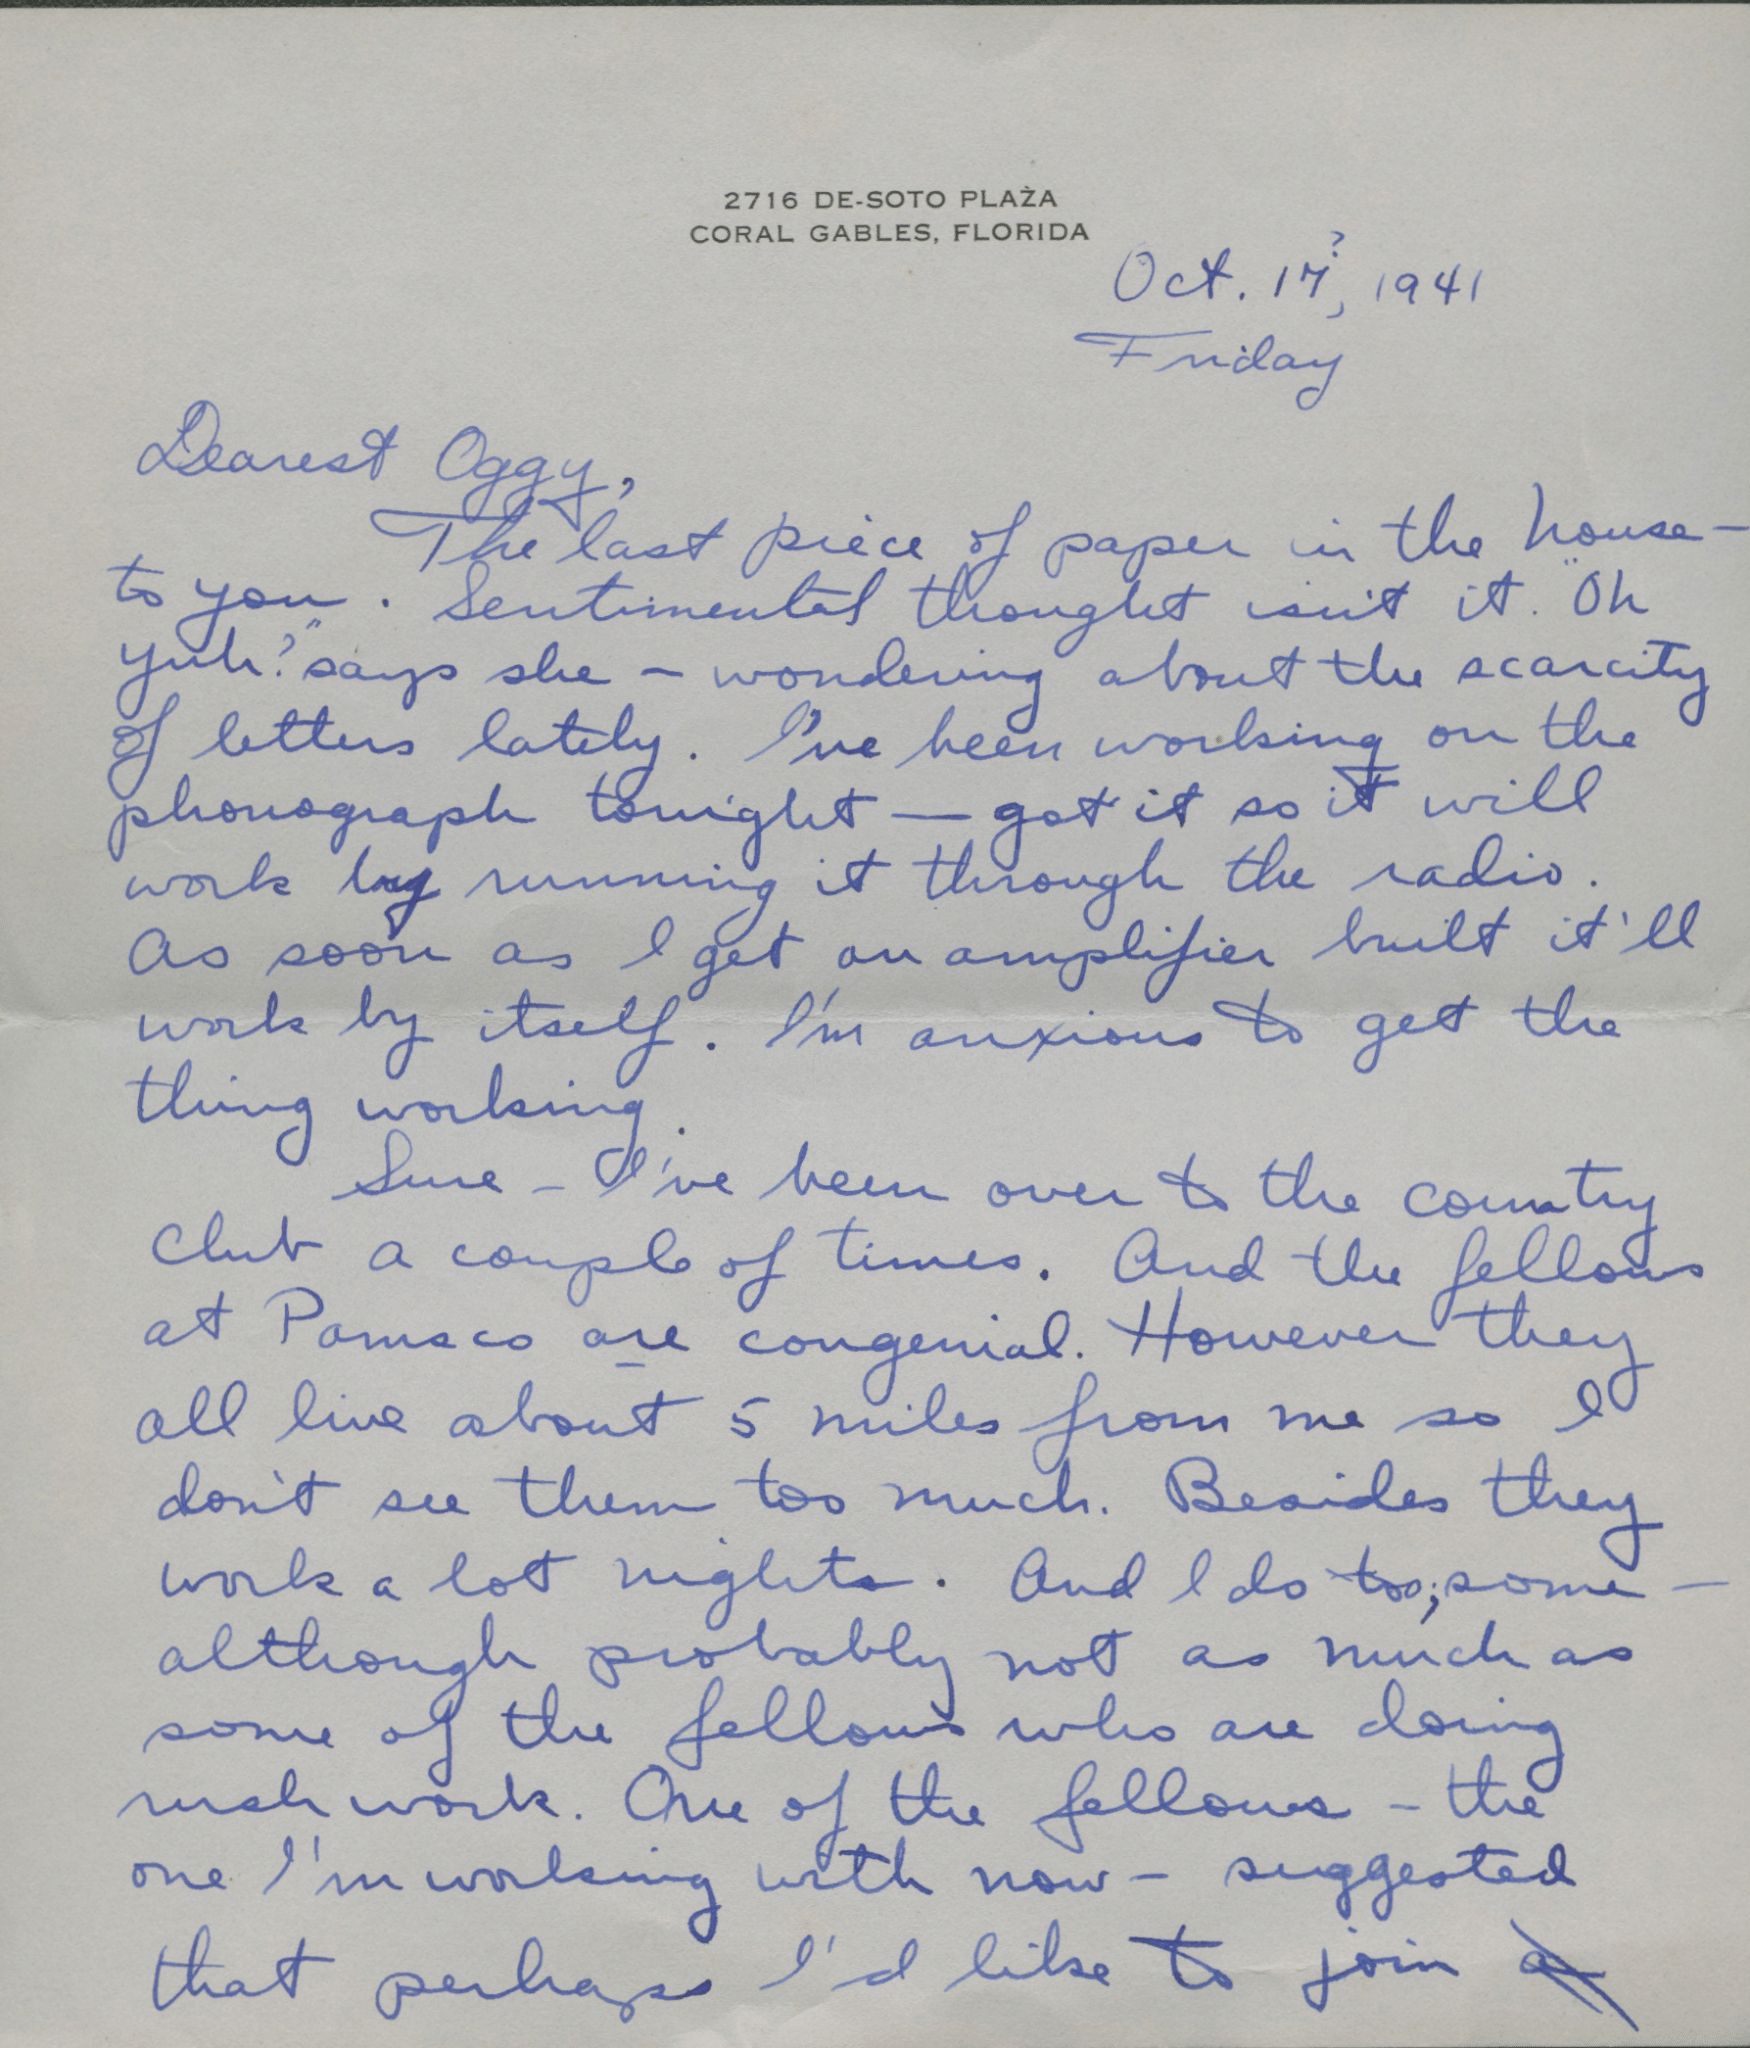 2716 DE-SOTO PLAZA
CORAL GABLES, FLORIDA
Oct. 17?, 1941
Friday
Dearest Oggy,
The last piece of paper in the house —
to you. Sentimental thought isn't it. "Oh
yuh?" says she – wondering about the scarcity
of letters lately. I've been working on the
phonograph tonight — got it so it will
work by running it through the radio.
As soon as I get an amplifier built it'll
work by itself. I'm anxious to get the
thing working.
Sure – I've been over to the country
club a couple of times. And the fellows
at Pamsco are congenial. However they
all live about 5 miles from me so I
don't see them too much. Besides they
work a lot nights. And I do too; some –
although probably not as much as
some of the fellows who are doing
rush work. One of the fellows – the
one I'm working with now – suggested
that perhaps I'd like to join a